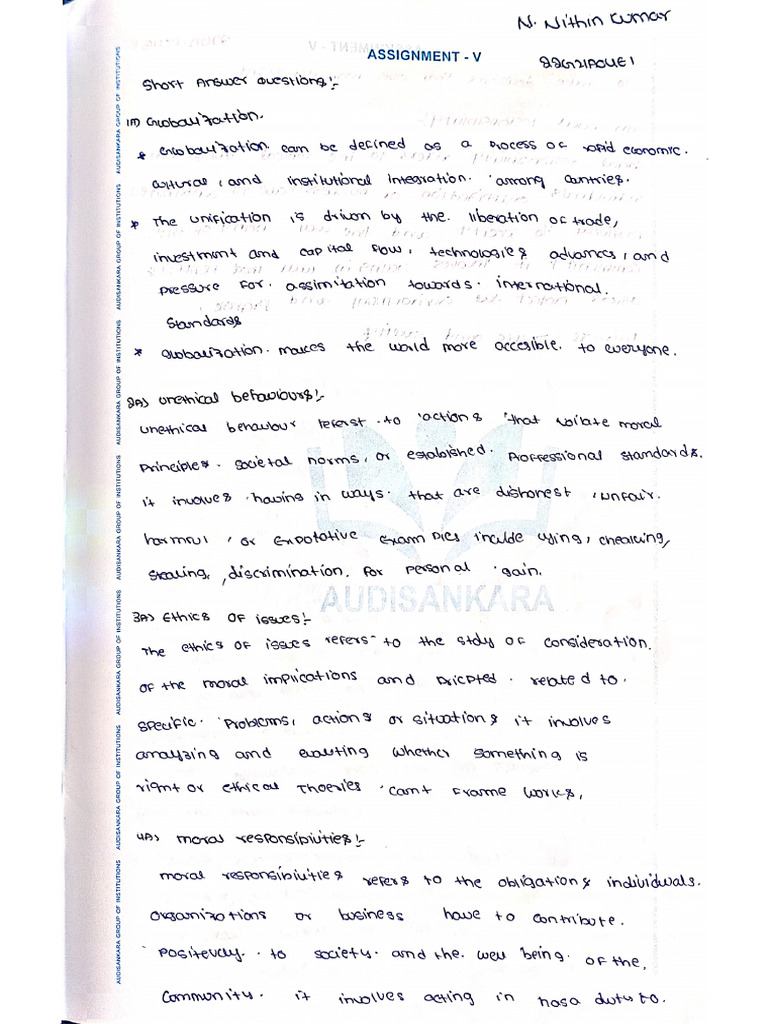 N. Nithin Kumar
ASSIGNMENT - V
Short Answer Questions:-
1A) Globalization.
* Globalization can be defined as a Process of rapid economic.
cultural, and institutional integration. among Contries.
* The unification is driven by the. liberation of trade,
investment and capital flow, technologies advances, and
pressure for. assimilation towards. international.
Standards
* Globalization. makes the world more accesible. to everyone.
2A) unethical behaviours:-
unethical behaviour referst to actions that voilate moral
principles. societal norms, or established. Proffessional standards.
it involves having in ways. that are dishonest, unfair.
harmful, or expotative examples inculde lying, cheating,
stealing, discrimination. for personal gain.
AUDISANKARA
3A) Ethics of issues:-
The ethics of issues refers to the stdy of consideration.
of the moral implications and related to.
specific. Problems, actions or situations it involves
analyzing and evaluting whether something is
right or ethical Theories frame works.
4A) moral responsibiuties:-
moral responsibiuties refers to the obligations individuals.
organizations or business have to contribute.
positevely. to society. and the. well being. of the,
Community. it involves acting in
AUDISANKARA GROUP OF INSTITUTIONS AUDISANKARA GROUP OF INSTITUTIONS AUDISANKARA GROUP OF INSTITUTIONS AUDISANKARA GROUP OF INSTITUTIONS AUDISANKARA GROUP OF INSTITUTIONS AUDISANKARA GROUP OF INSTITUTIONS AUDISANKARA GROUP OF INSTITUTIONS